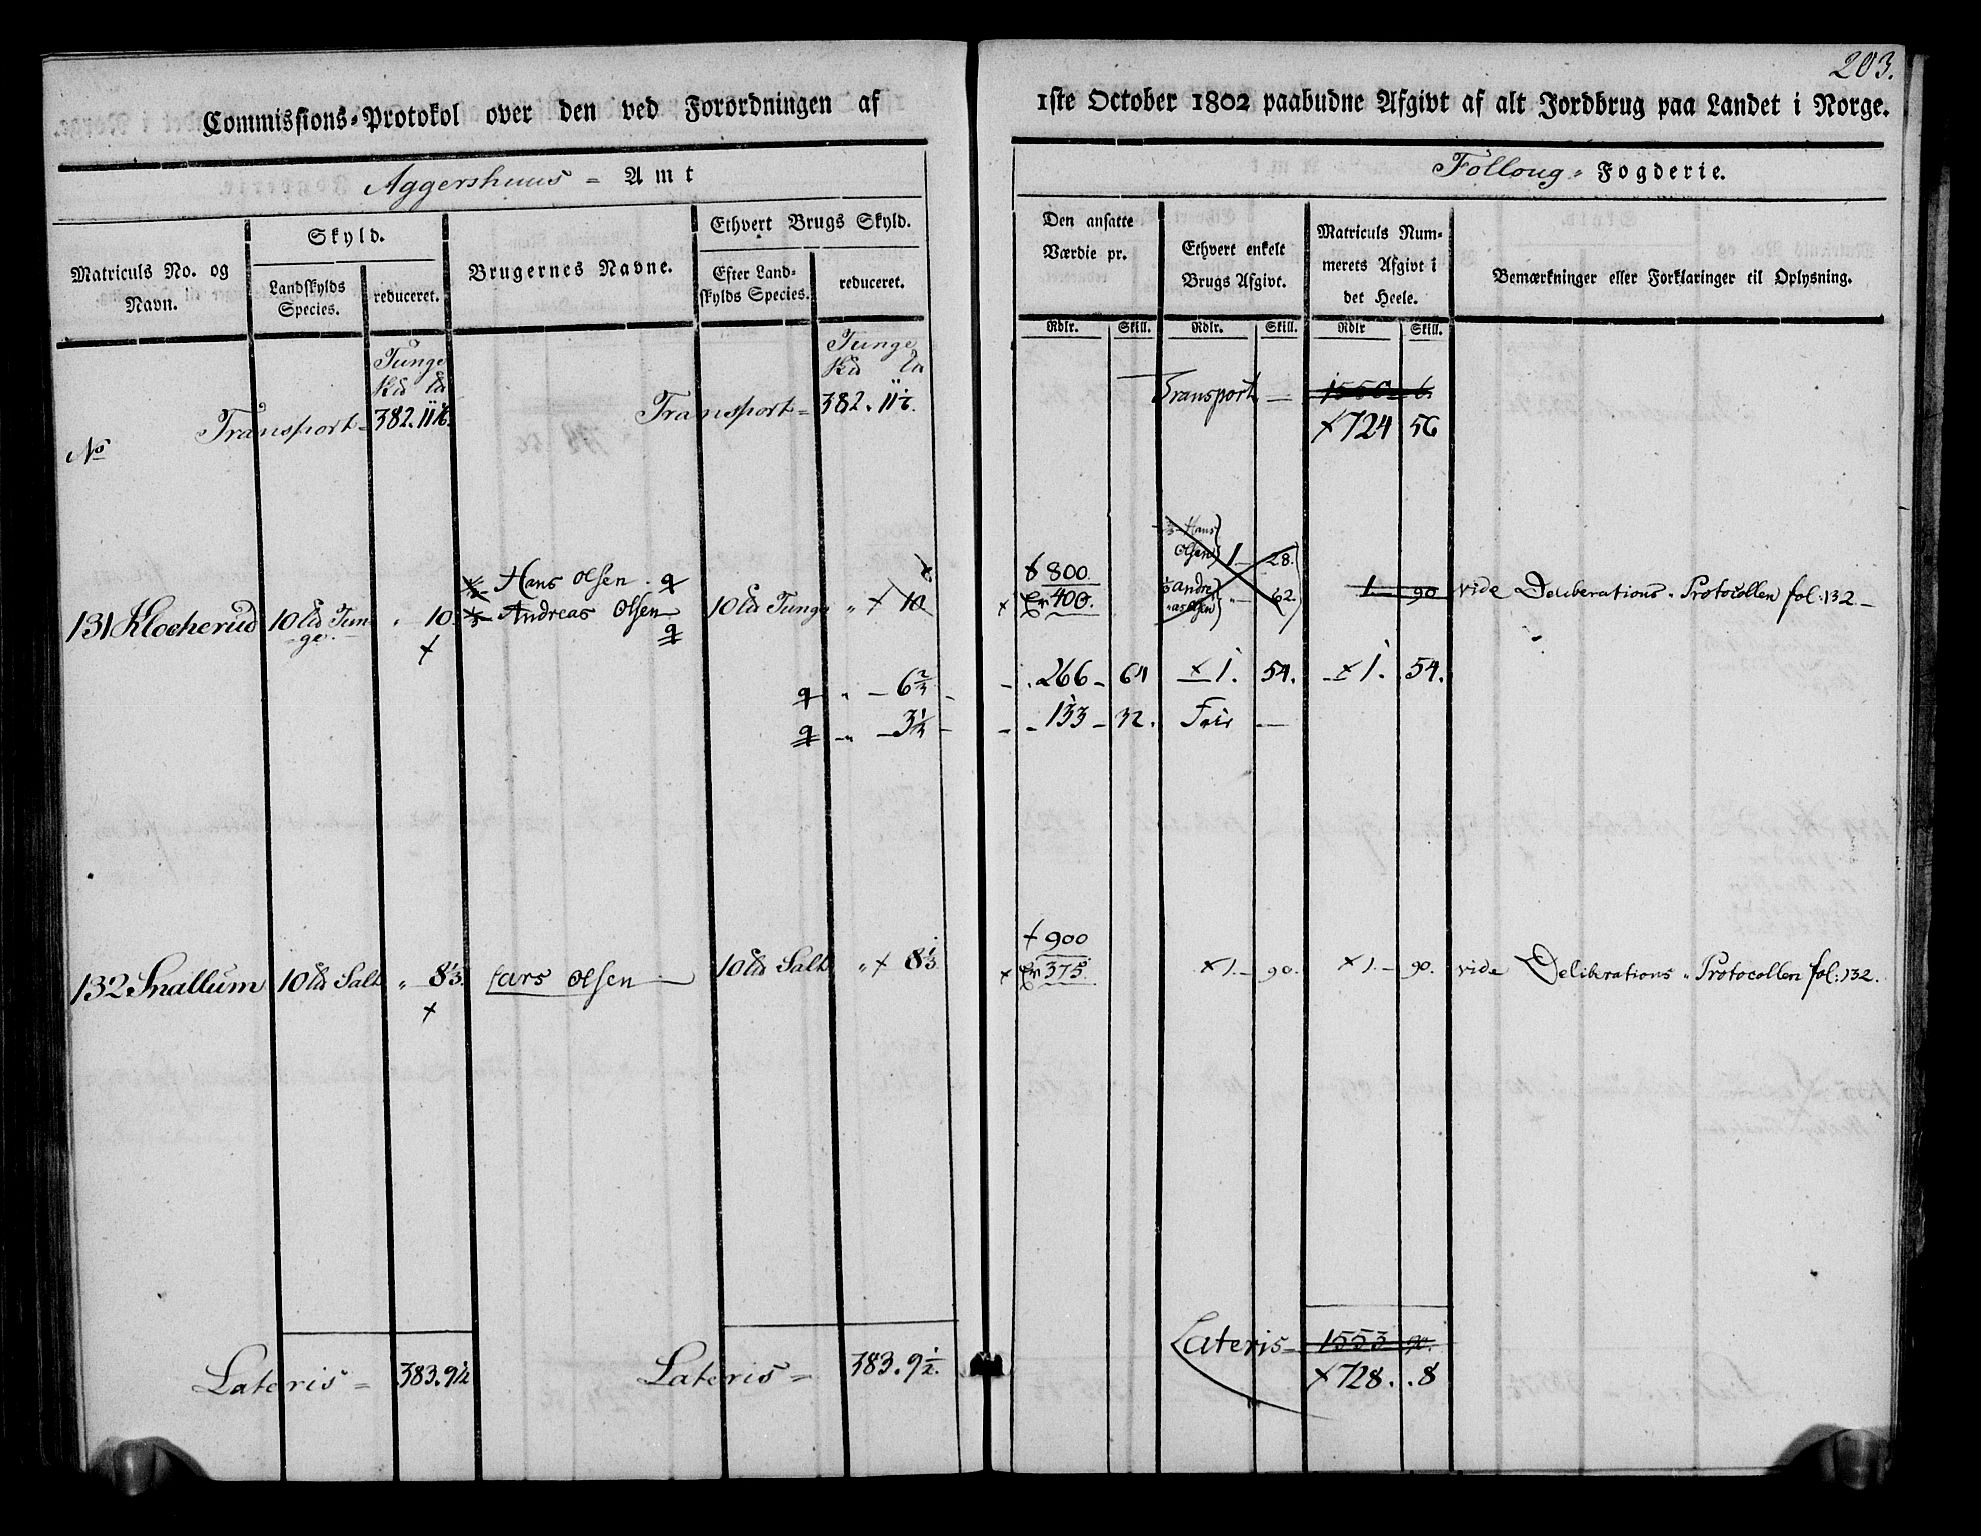 203.
Commissions-Protokol over den ved Forordningen af 1ste October 1802 paabudne Afgivt af alt Jordbrug paa Landet i Norge.
Aggershuus - Amt
Follong - Fogderie.
Matriculs No. og Navn.
Skyld.
Landskylds Species.
reduceret.
Brugernes Navne.
Ethvert Brugs Skyld.
Efter Landskylds Species.
reduceret.
Den ansatte Værdie pr.
Ethvert enkelt Brugs Afgivt.
Matriculs Nummerets Afgivt i det Heele.
Bemærkninger eller Forklaringer til Oplysning.
Rdlr. Skill. Rdlr. Skill. Rdlr Skill.
Tunge
Tunge
No
Transport = 382. 11 Transport = 382. 11 Transport — 1550 6.
+ 724 56
Hans Olsen 1 — 28.
Hans Olsen . 800.
131 Klocherud 10 Ld Tunge " 10. Andreas Olsen 10 Ld Tunge " + 10 400. Andreas Olsen " 62. 1 90 vide Deliberations - Protocollen fol: 132.
" — 6 2/3 — 266 — 64 + 1. 54. + 1. 54.
" — 3 1/3 — 133 — 32. Frie —
+ 900
132 Snallum 10 Ld Salt " 8 1/3. Lars Olsen 10 Ld Salt " + 8 1/3 375. + 1. — 90. + 1. — 90. vide Deliberations - Protocollen fol: 132.
Lateris = 383. 9 1/2 Lateris = 383. 9 1/2. Lateris — 1553 90.
+ 728. . 8